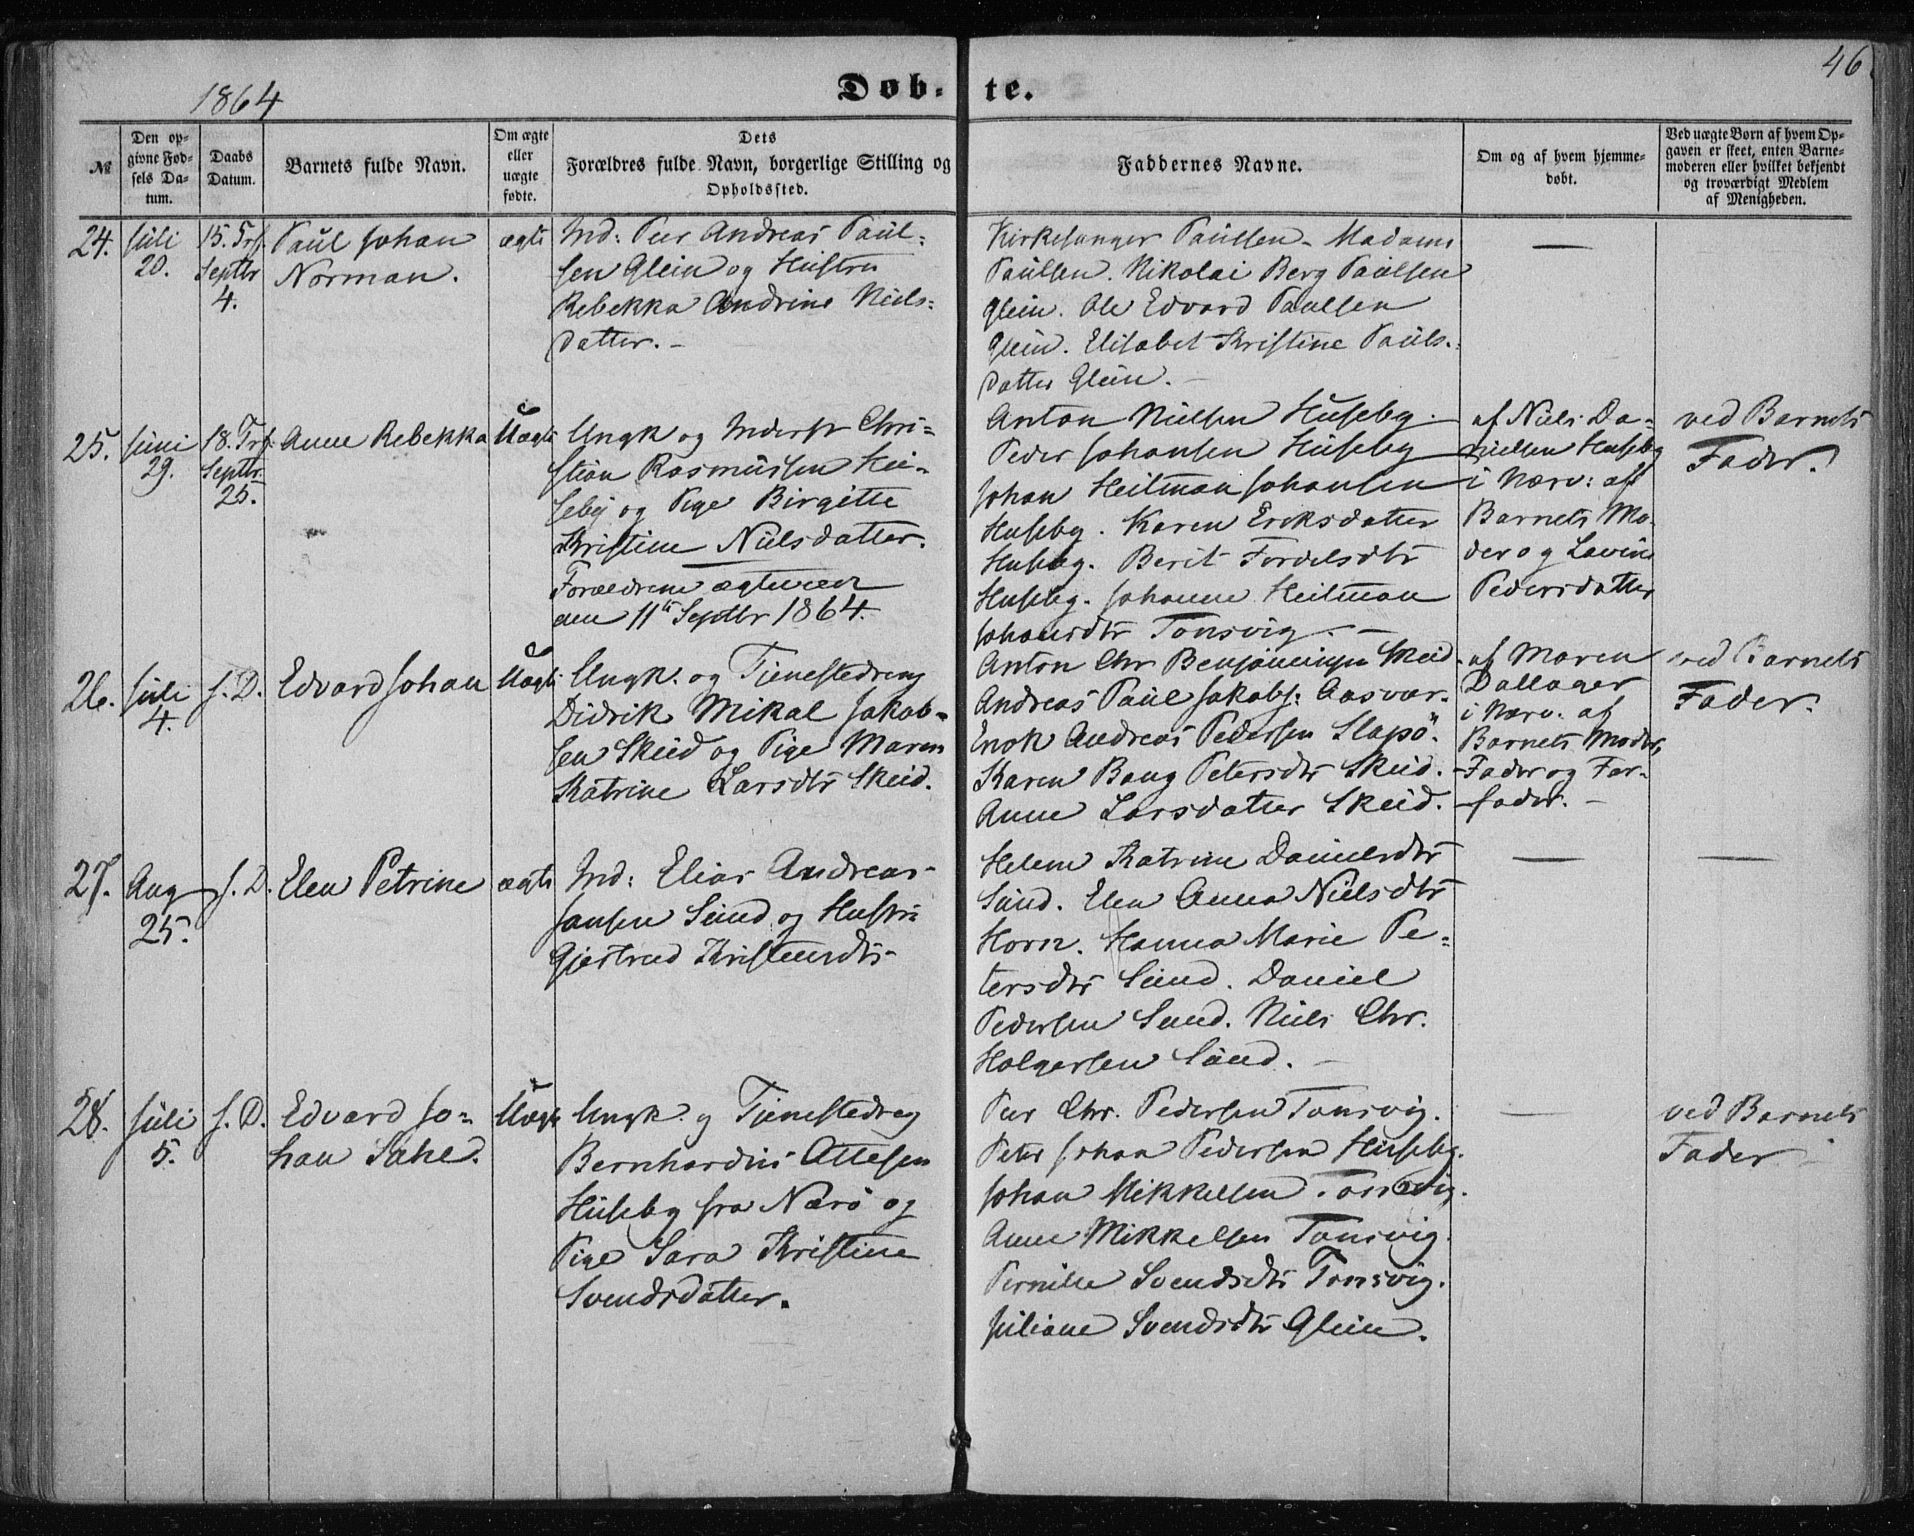 46
1864
Døb-
te.
№
Den op-
givne Fød-
sels Da-
tum.
Daabs
Datum.
Barnets fulde Navn.
Om ægte
eller
uægte
fødte.
Dets
Forældres fulde Navn, borgerlige Stilling og
Opholdssted.
Faddernes Navne.
Om og af hvem hjemme-
døbt.
Ved uægte Børn af hvem Op-
gaven er skeet, enten Barne-
moderen eller hvilket bekjendt
og troværdigt Medlem
af Menigheden.
24.
Juli
20.
15. Trf.
Septbr
4.
Paul Johan
Norman.
ægte
Ind: Peer Andreas Paul-
sen Glein og Hustru
Rebekka Andrine Niels-
datter. -
Kirkesanger Paulsen - Madame
Paulsen. Nikolai Berg Paulsen
Glein. Ole Edvard Paulsen
Glein. Elisabet Kristine Pauls-
datter Glein. -
—
25.
Juni
29.
18. Trf.
Septbr
25.
Anne Rebekka
Uægte
Ungk og Inderst Chri-
stian Rasmussen Hu-
seby og Pige Birgitte
Kristine Nielsdatter.
Forældrene ægteviede
den 11te Septbr 1864.
Anton Nielsen Huseby.
Peder Johansen Huseby
Johan Heitman Johansen
Huseby. Karen Eriksdatter
Huseby. Berit Fordelsdtr
Huseby. Johanne Heitman
Johansdtr Tonsvig. -
af Niels Da-
nielsen Huseby
i Nærv: af
Barnets Mo-
der og Lavine
Pedersdatter
ved Barnets
Fader.
26.
Juli
4.
s. D.
Edvard Johan
Uægte
Ungk. og Tjenestedreng
Didrik Mikal Jakob-
sen Skeid og Pige Maren
Katrine Larsdtr Skeid.
Anton Chr Benjaminsen Skeid.
Andreas Paul Jakobs: Aasvær.
Enok Andreas Pedersen Slapö.
Karen Bang Petersdtr Skeid.
Anne Larsdatter Skeid.
af Maren
Dallager
i Nærv. af
Barnets Moder,
Fader og Far-
fader. -
ved Barnets
Fader.
27.
Aug
25.
s. D.
Elen Petrine
ægte
Ind: Elias Andreas
Jansen Sund og Hustru
Gjertrud Kristensdtr
Helene Katrine Danielsdtr
Sund. Elen Anna Nielsdtr
Horn. Hanna Marie Pe-
tersdtr Sund. Daniel
Pedersen Sund. Niels Chr.
Holgersen Sund. -
—
—
28.
Juli
5.
s. D.
Edvard Jo-
han Sahl.
Uægte
Ungk. og Tjenestedreng
Bernhardus Ottesen
Huseby fra Nærö og
Pige Sara Kristine
Svendsdatter.
Peer Chr. Pedersen Tonsvig.
Peter Johan Pedersen Huseby.
Johan Mikkelsen Tonsvig.
Anne Mikkelsen Tonsvig.
Pernille Svendsdtr Tonsvig.
Juliane Svendsdtr Glein.
—
ved Barnets
Fader